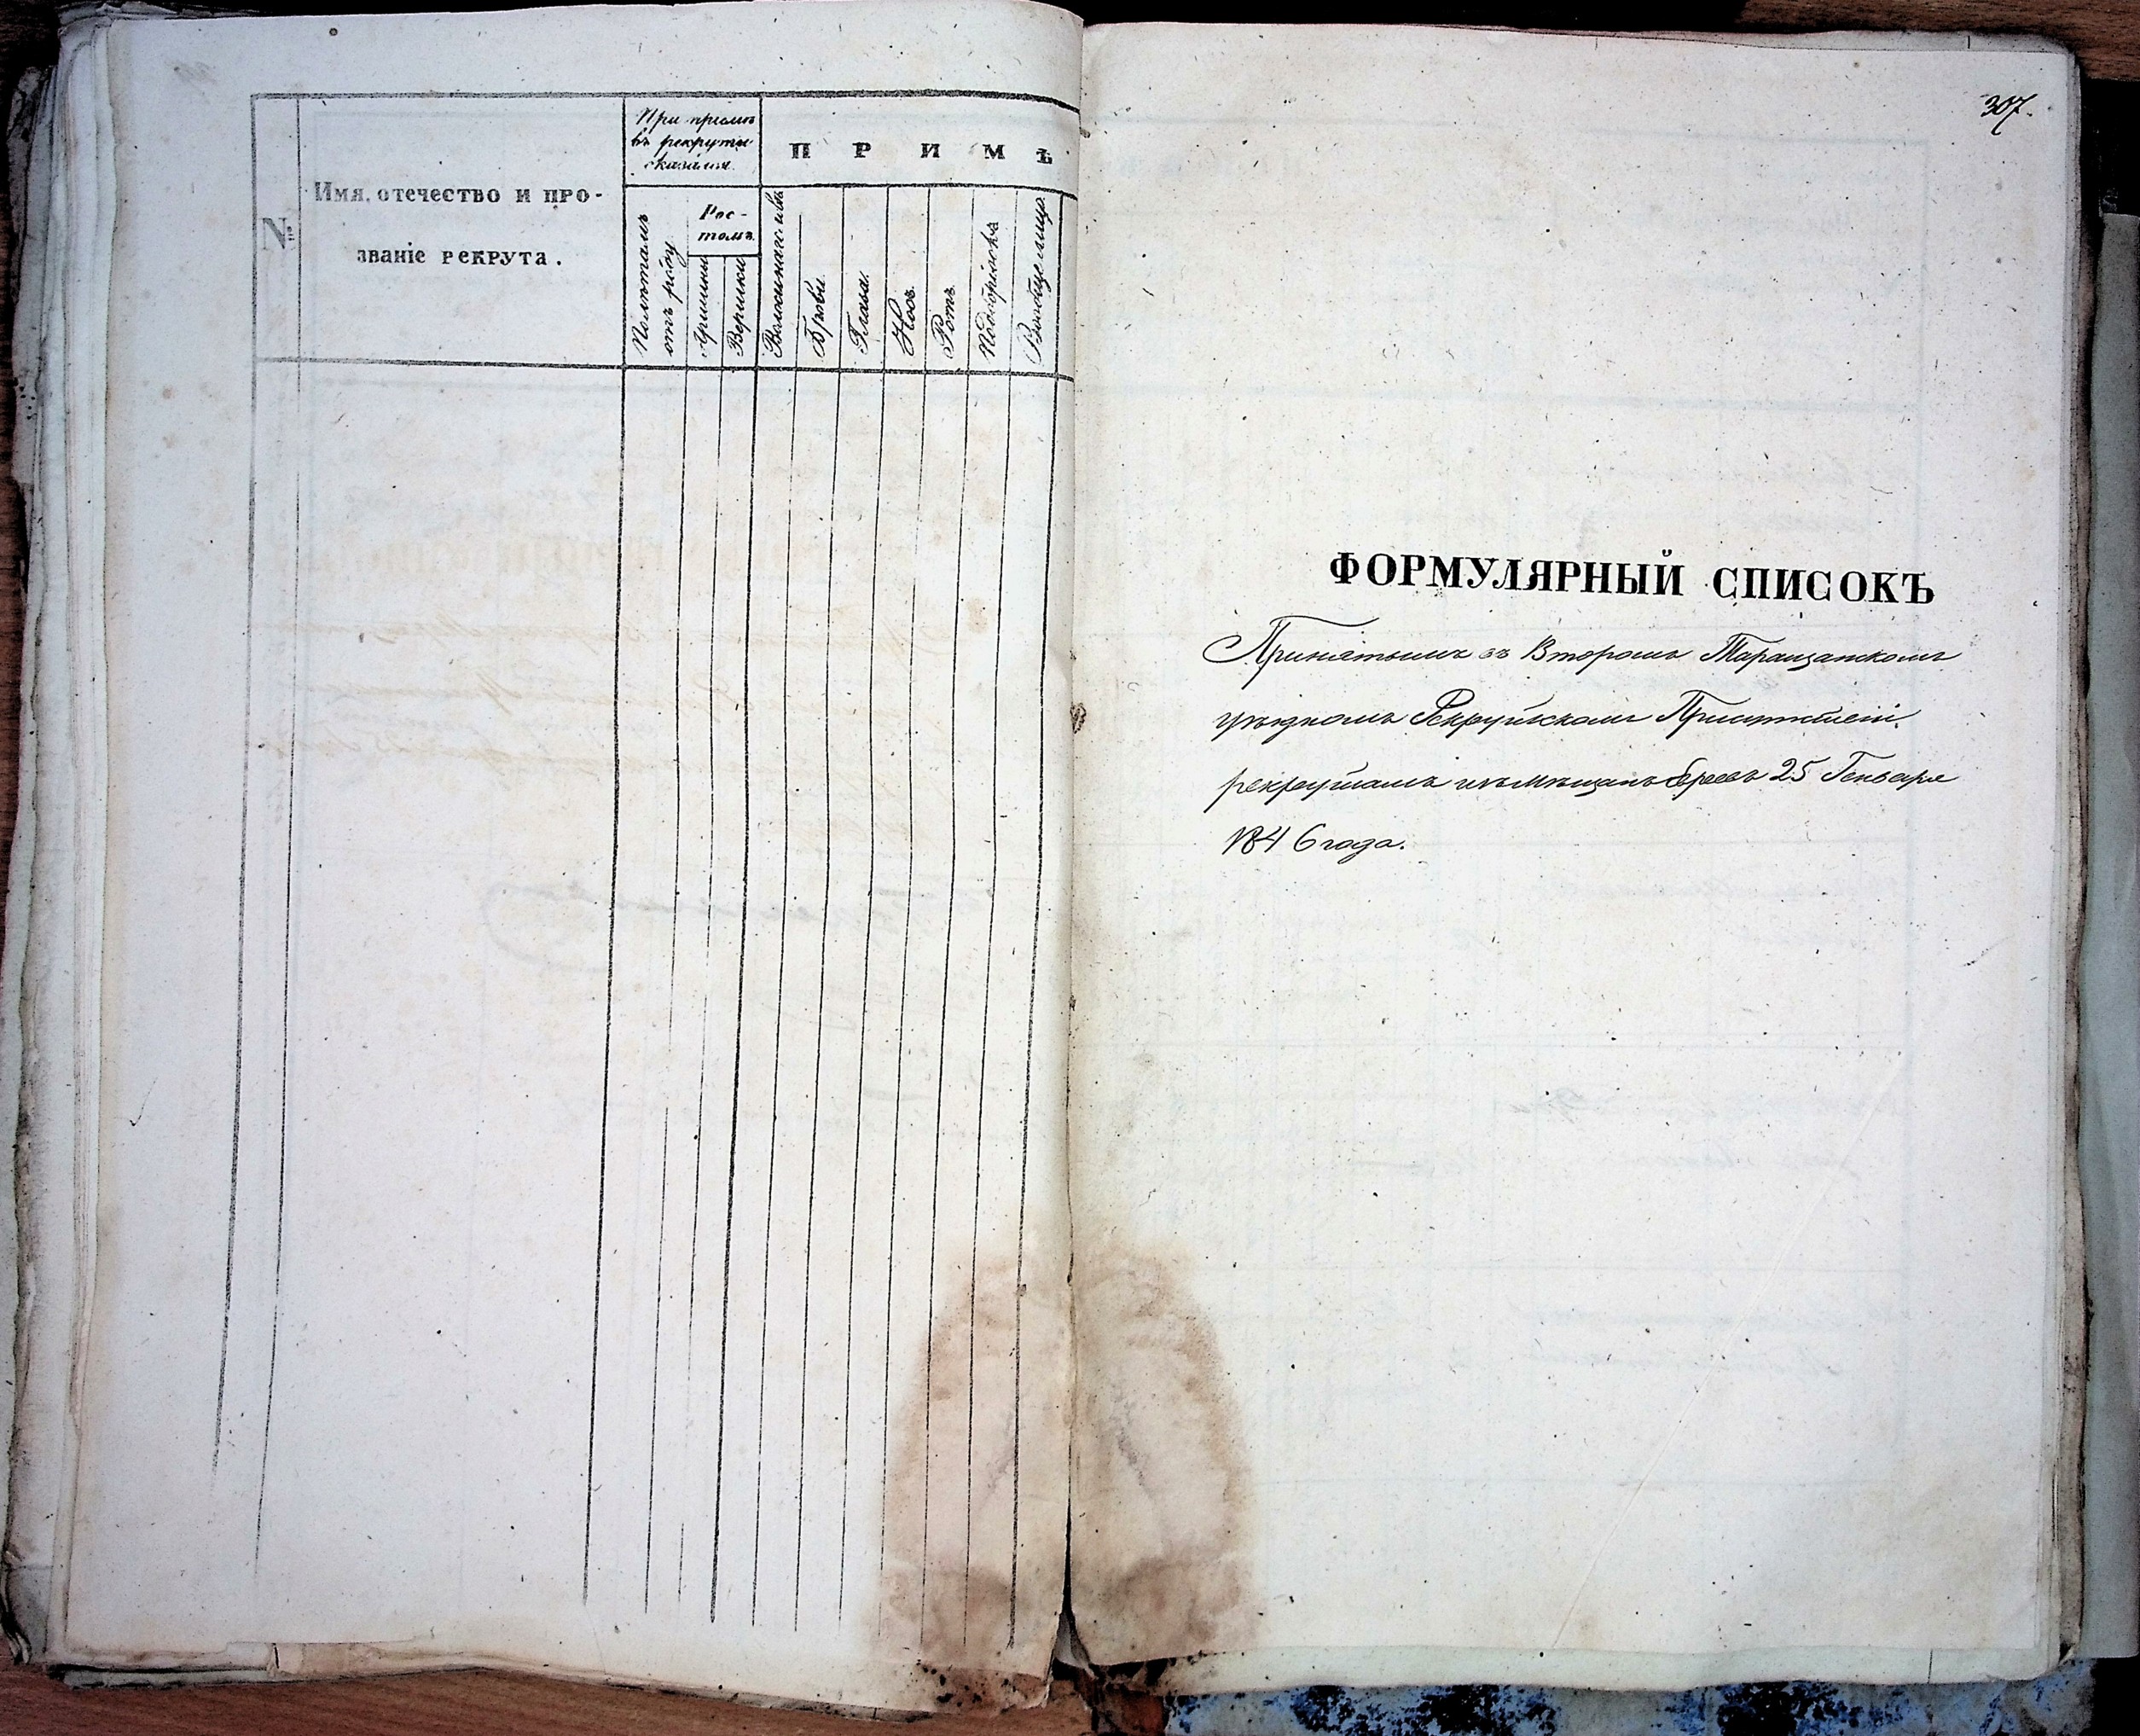 №
Имя, отечество и про-
званіе рекрута.
При пріемѣ
въ рекруты
оказался.
По лѣтамъ
отъ роду
Рос-
томъ.
Аршины
Вершки
П Р И М Ѣ
Волосы на головѣ
Брови.
Глаза.
Носъ.
Ротъ.
Подбородокъ
Вообще лицо.
307.
ФОРМУЛЯРНЫЙ СПИСОКЪ
Принятымъ въ Второмъ Таращанскомъ
уѣздномъ Рекрутскомъ Присутствіи.
рекрутамъ изъ мѣщанъ евреевъ 25 Генваря
1846 года.